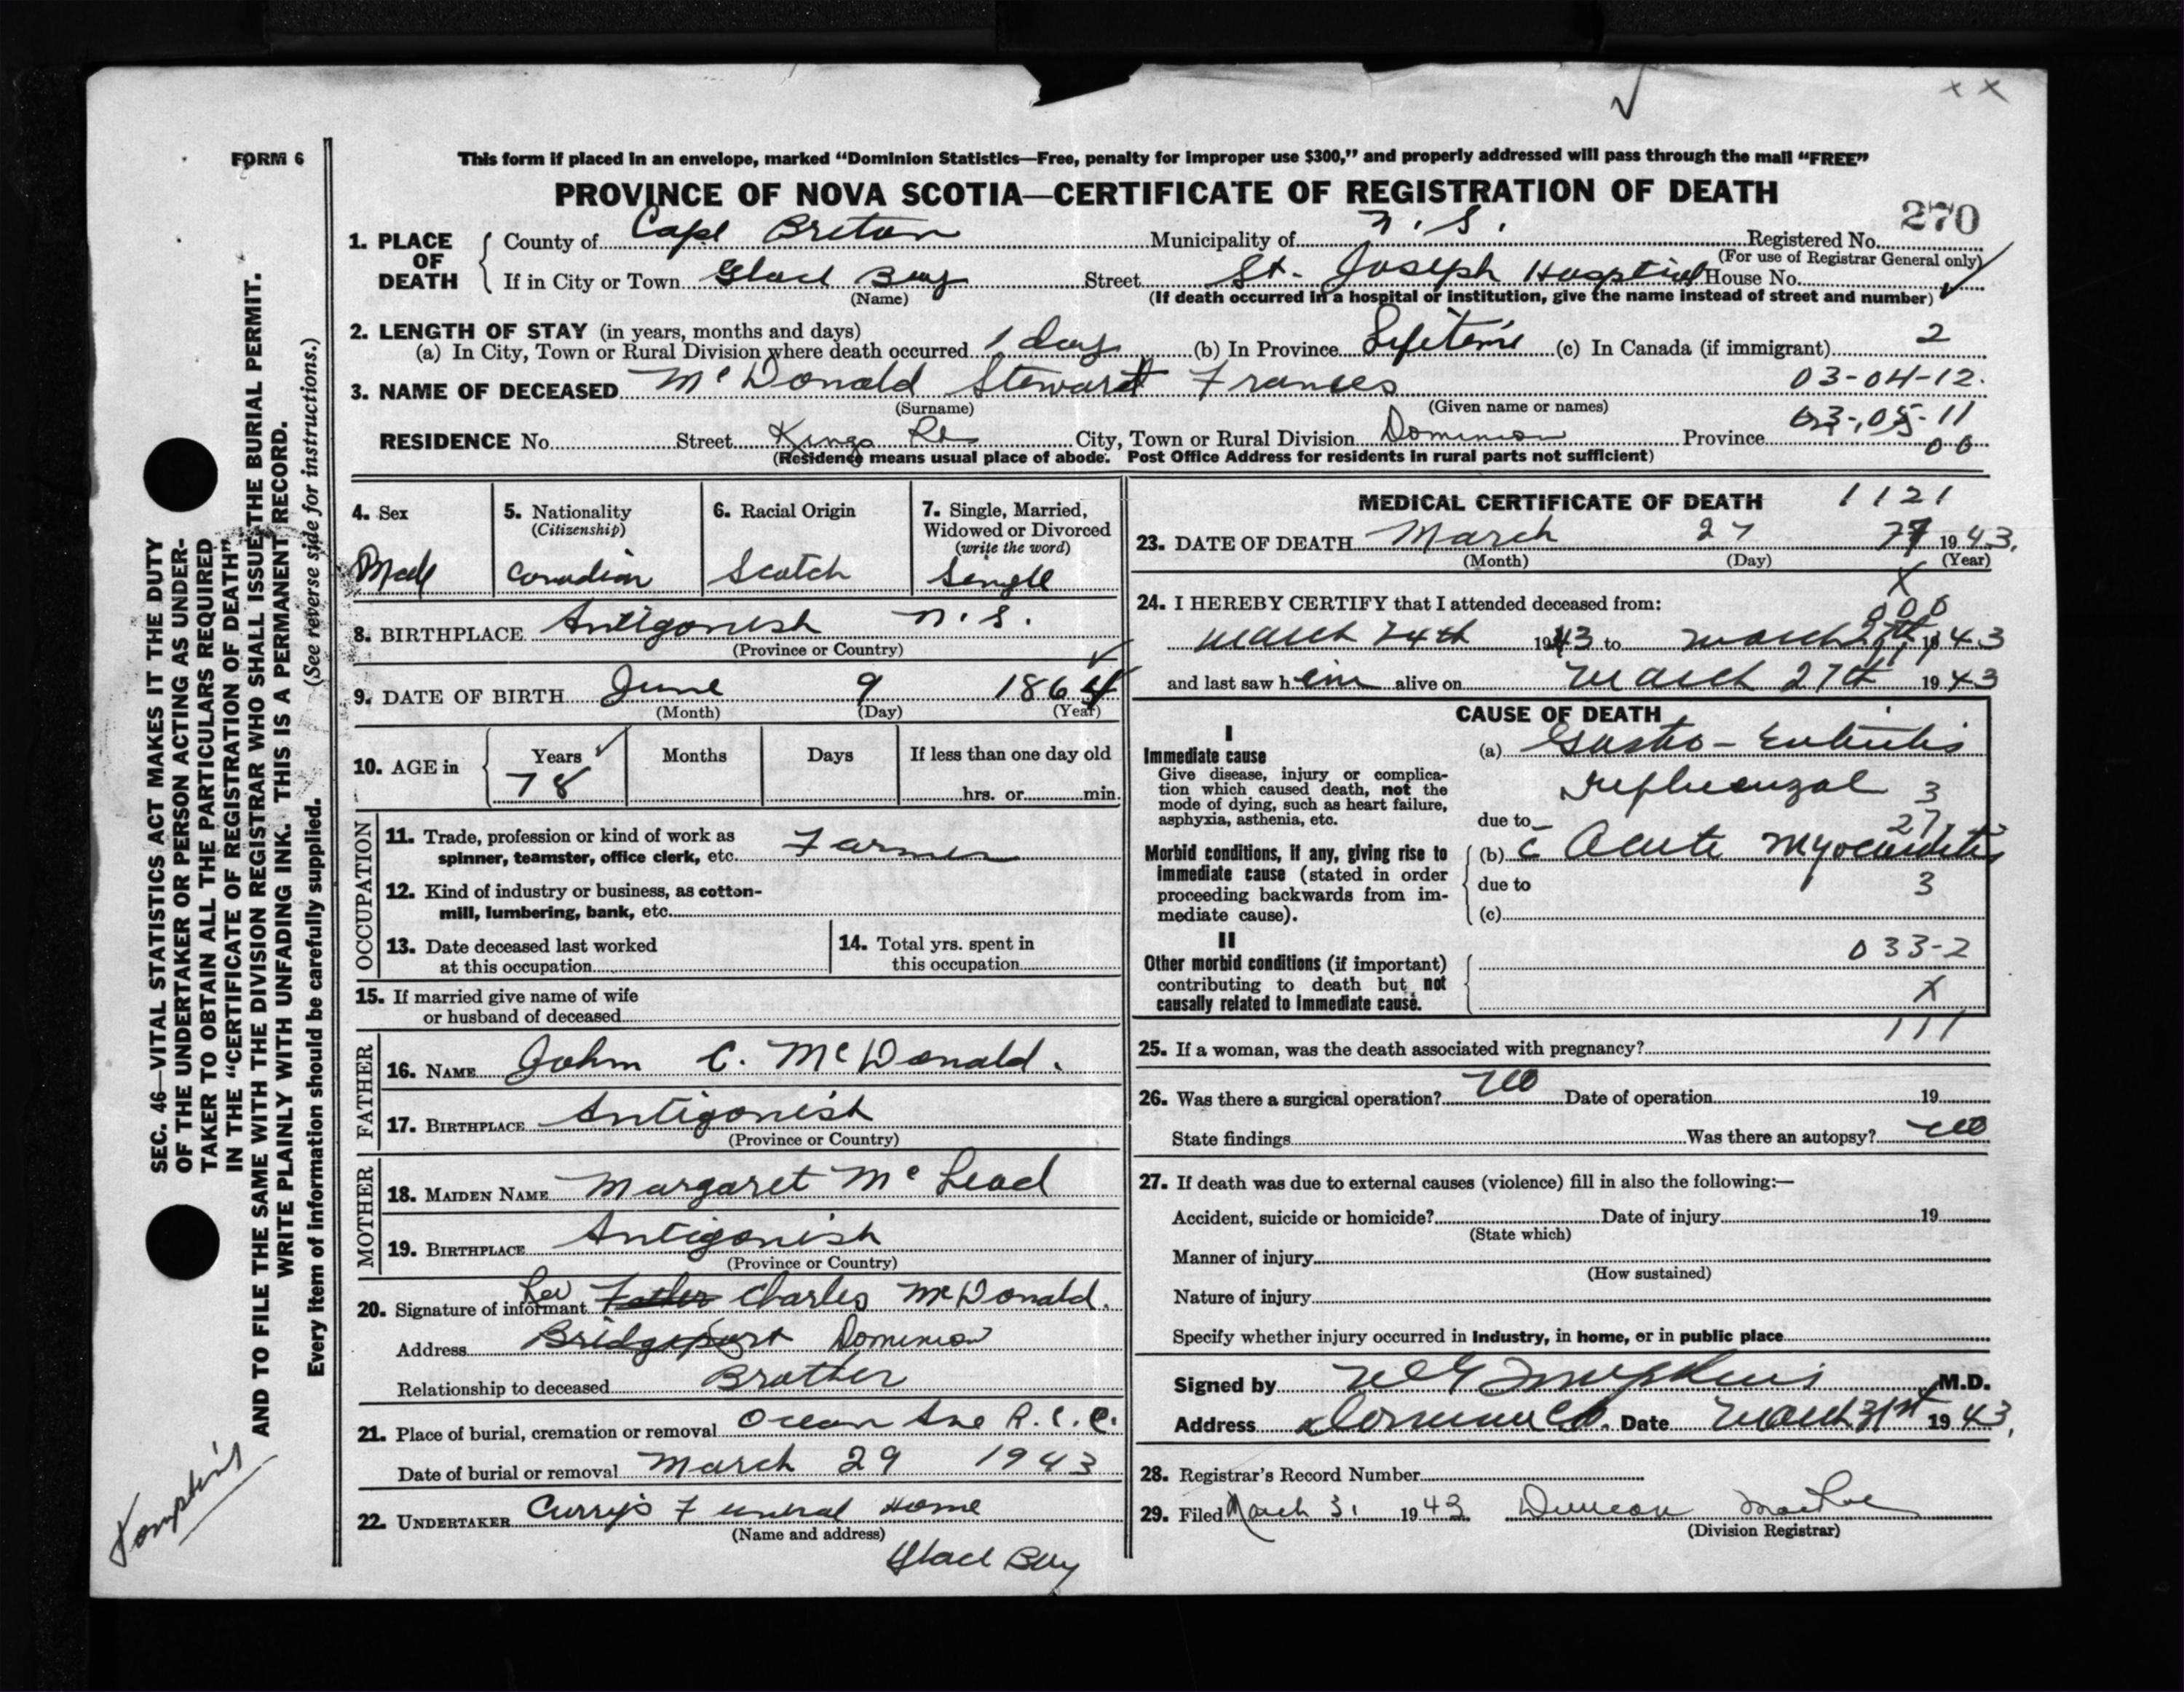 ✓ x x
FORM 6
This form if placed in an envelope, marked "Dominion Statistics—Free, penalty for improper use $300," and properly addressed will pass through the mail "FREE"
PROVINCE OF NOVA SCOTIA—CERTIFICATE OF REGISTRATION OF DEATH
270
1. PLACE OF DEATH
County of Cape Breton Municipality of N. S. Registered No.
(For use of Registrar General only)
If in City or Town Glace Bay Street St. Joseph Hosptial House No.
(Name) (If death occurred in a hospital or institution, give the name instead of street and number)
2. LENGTH OF STAY (in years, months and days)
(a) In City, Town or Rural Division where death occurred 1 day (b) In Province Lifetime (c) In Canada (if immigrant) 2
3. NAME OF DECEASED McDonald Stewart Frances 03-04-12.
(Surname) (Given name or names)
03-05-11
RESIDENCE No. Street Kings Rd City, Town or Rural Division Dominion Province 00
(Residence means usual place of abode. Post Office Address for residents in rural parts not sufficient)
4. Sex
Male
5. Nationality
(Citizenship)
Canadian
6. Racial Origin
Scotch
7. Single, Married,
Widowed or Divorced
(write the word)
Single
8. BIRTHPLACE Antigonish N. S.
(Province or Country)
9. DATE OF BIRTH June 9 1864
(Month) (Day) (Year)
10. AGE in
Years Months Days If less than one day old
78 hrs. or min.
OCCUPATION
11. Trade, profession or kind of work as
spinner, teamster, office clerk, etc. Farmer
12. Kind of industry or business, as cotton-
mill, lumbering, bank, etc.
13. Date deceased last worked
at this occupation
14. Total yrs. spent in
this occupation
15. If married give name of wife
or husband of deceased
FATHER
16. NAME John C. McDonald.
17. BIRTHPLACE Antigonish
(Province or Country)
MOTHER
18. MAIDEN NAME Margaret McLeod
19. BIRTHPLACE Antigonish
(Province or Country)
20. Signature of informant Rev Father Charles McDonald.
Address Bridgeport Dominion
Relationship to deceased Brother
21. Place of burial, cremation or removal Ocean Ave R. C. C.
Date of burial or removal March 29 1943
22. UNDERTAKER Curry's Funeral Home
(Name and address)
Glace Bay
MEDICAL CERTIFICATE OF DEATH 1121
23. DATE OF DEATH March 27 1943.
(Month) (Day) (Year)
x
24. I HEREBY CERTIFY that I attended deceased from: 000
March 24th 1943 to March 27th, 1943
and last saw him alive on March 27th 1943
CAUSE OF DEATH
I
Immediate cause
Give disease, injury or complica-
tion which caused death, not the
mode of dying, such as heart failure,
asphyxia, asthenia, etc.
(a) Gastro-Enteritis
Influenzal 3
due to 27
Morbid conditions, if any, giving rise to
immediate cause (stated in order
proceeding backwards from im-
mediate cause).
(b) c Acute Myocarditis
due to 3
(c)
II
Other morbid conditions (if important)
contributing to death but not
causally related to immediate cause.
033-2
x
111
25. If a woman, was the death associated with pregnancy?
26. Was there a surgical operation? no Date of operation 19
State findings Was there an autopsy? no
27. If death was due to external causes (violence) fill in also the following:—
Accident, suicide or homicide? Date of injury 19
(State which)
Manner of injury
(How sustained)
Nature of injury
Specify whether injury occurred in industry, in home, or in public place
Signed by Tompkins M.D.
Address Date March 31st 1943,
28. Registrar's Record Number
29. Filed March 31 1943 Duncan
(Division Registrar)
SEC. 46—VITAL STATISTICS ACT MAKES IT THE DUTY
OF THE UNDERTAKER OR PERSON ACTING AS UNDER-
TAKER TO OBTAIN ALL THE PARTICULARS REQUIRED
IN THE "CERTIFICATE OF REGISTRATION OF DEATH"
AND TO FILE THE SAME WITH THE DIVISION REGISTRAR WHO SHALL ISSUE THE BURIAL PERMIT.
WRITE PLAINLY WITH UNFADING INK. THIS IS A PERMANENT RECORD.
Every item of information should be carefully supplied. (See reverse side for instructions.)
Tompkins